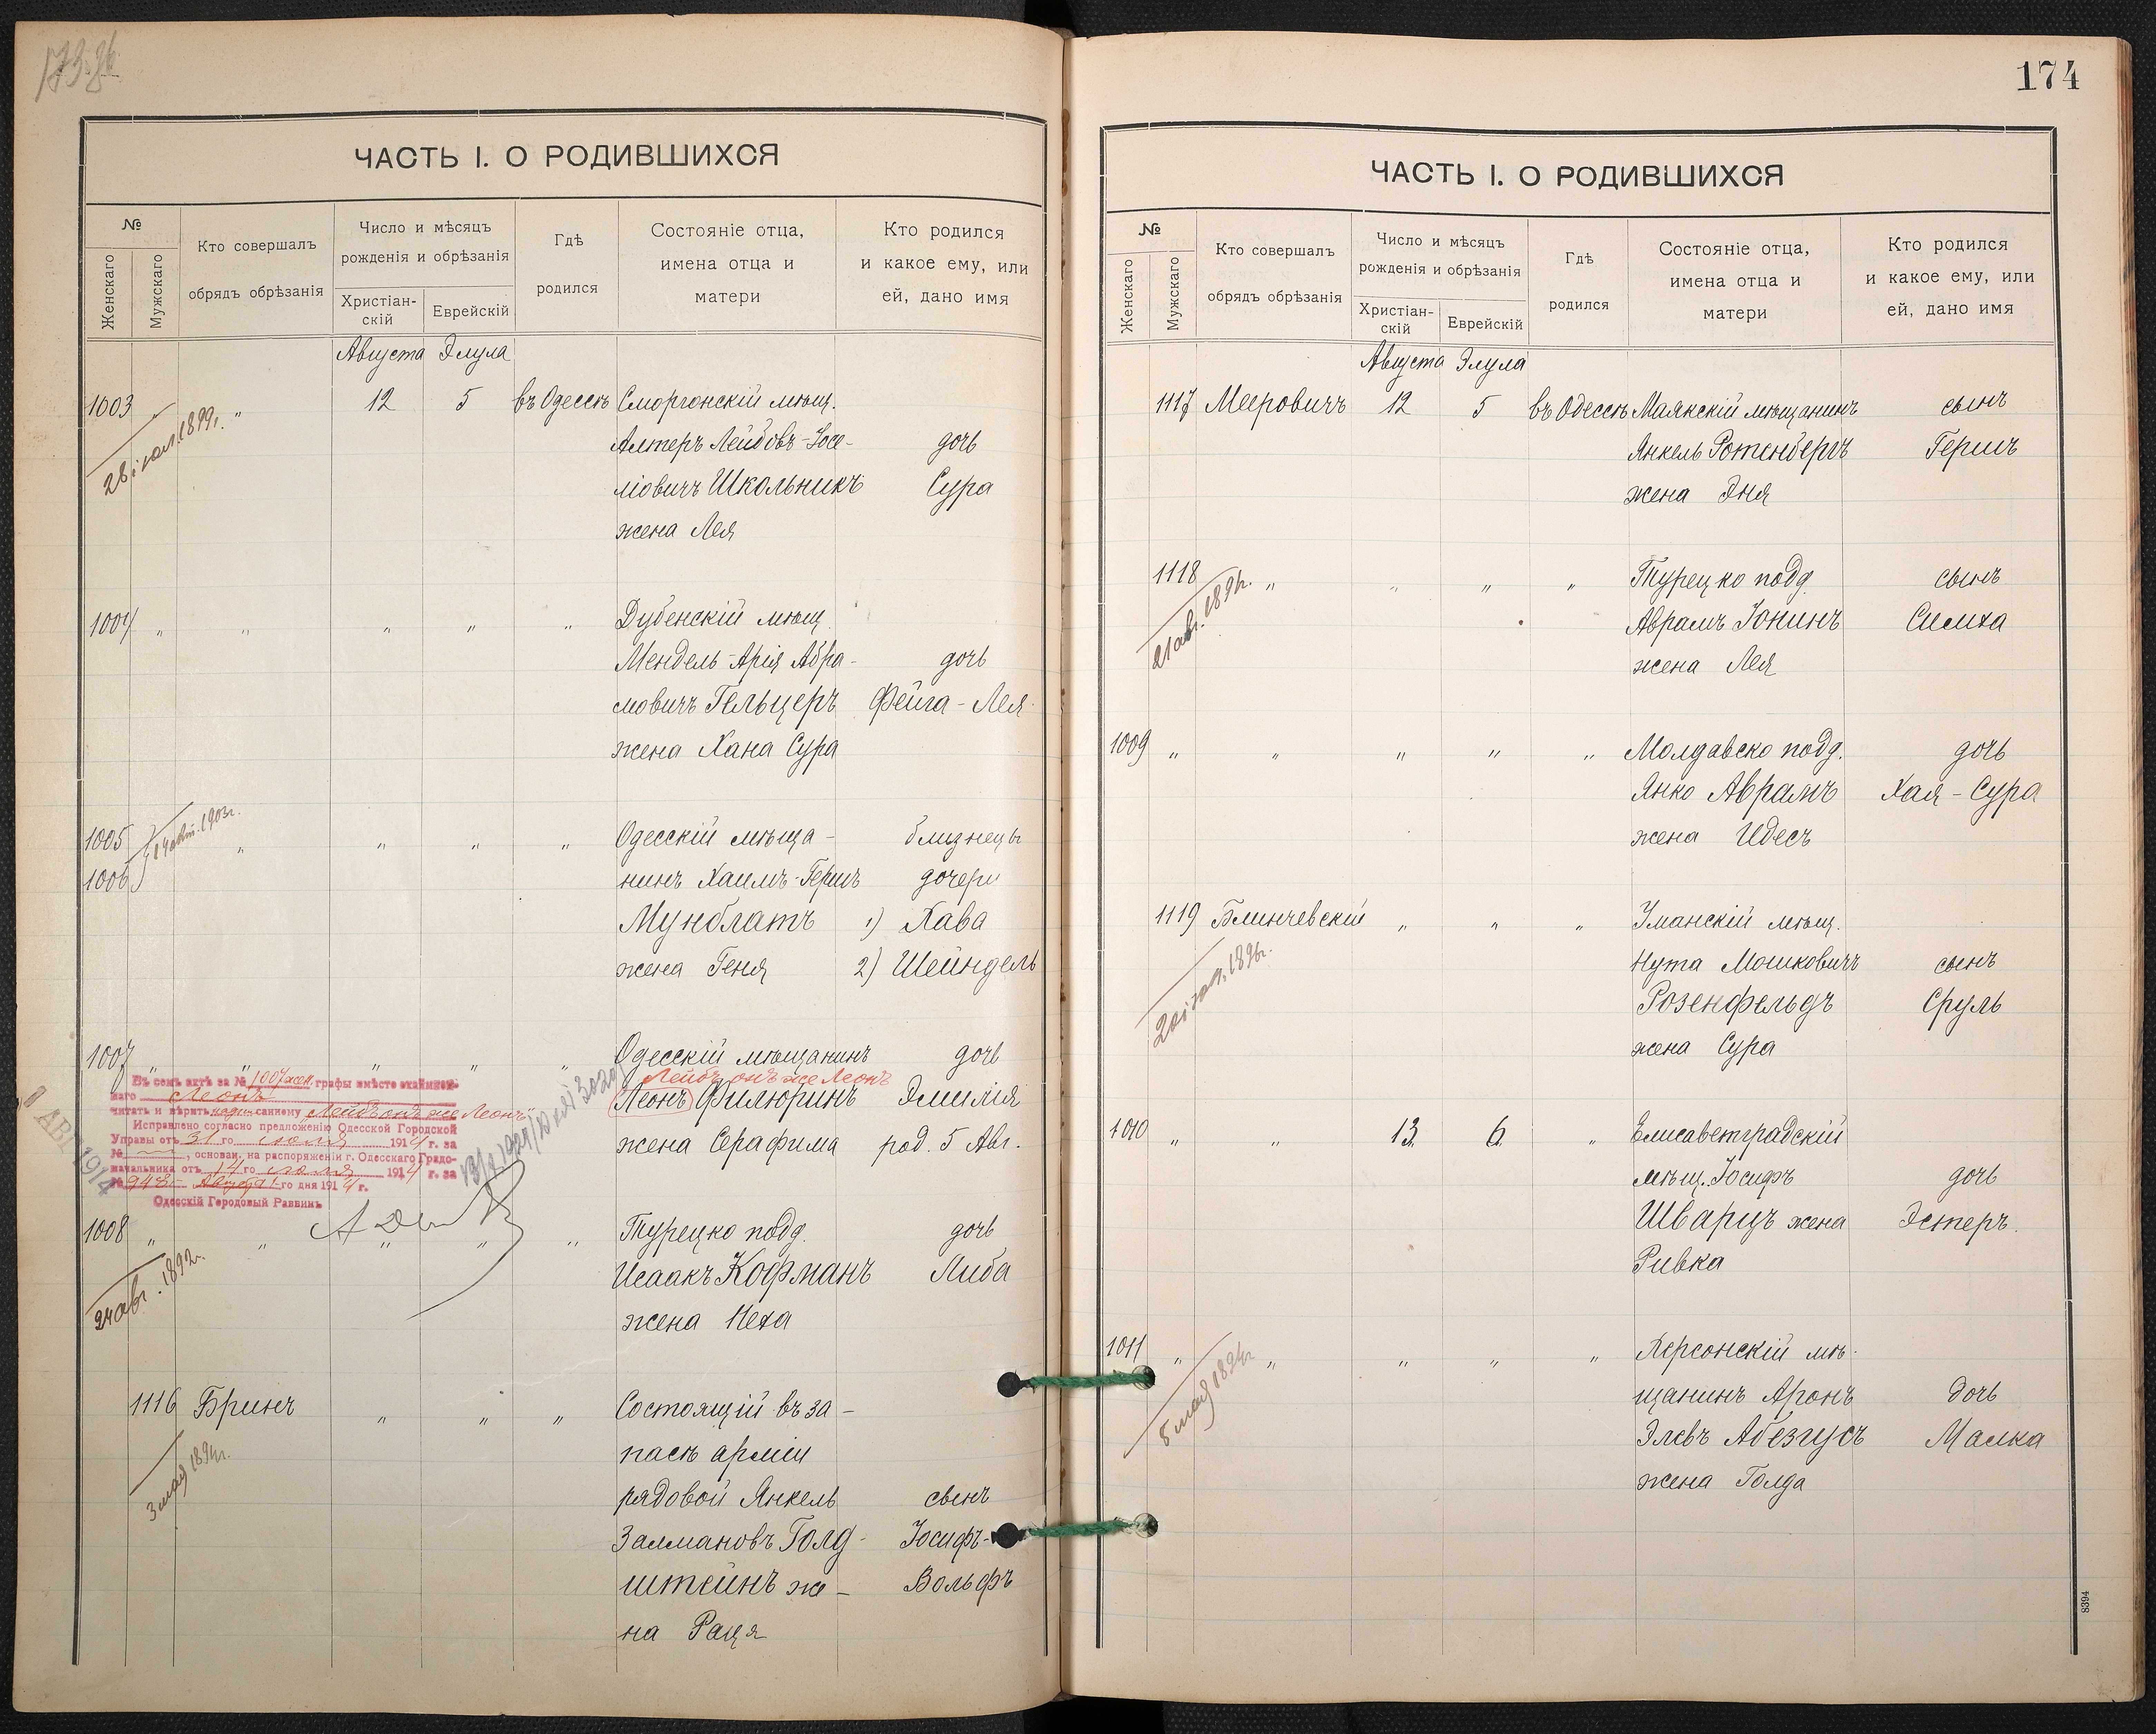 173 об.
ЧАСТЬ I. О РОДИВШИХСЯ
№
Женскаго
Мужскаго
Кто совершалъ
обрядъ обрѣзанія
Число и мѣсяцъ
рожденія и обрѣзанія
Христіан-
скій
Еврейскій
Гдѣ
родился
Состояніе отца,
имена отца и
матери
Кто родился
и какое ему, или
ей, дано имя
Августа Элула
1003 " " 12 5 въ Одессѣ Сморгонскій мѣщ.
28 іюл. 1899 г.
Алтеръ Лейбовъ-Іосе- дочь
ліовичъ Школьникъ Сура
жена Лея
1004 " " " " " Дубенскій мѣщ.
Мендель-Арія Абра- дочь
мовичъ Гельцеръ Фейга-Лея
жена Хана Сура
1005 " " " " Одесскій мѣща- близнецы
1903 г.
1006 нинъ Хаимъ-Гершъ дочери
Мунблатъ 1) Хава
жена Геня 2) Шейндель
1007 " " " " " Одесскій мѣщанинъ дочь
Лейбъ онъ же Леонъ
Леонъ Филюринъ Эмилія
жена Серафима род. 5 Авг.
Въ семъ актѣ за № 1007 жен. графы вмѣсто
наго Леонъ
читать и вѣрить санному Лейбъ онъ же Леонъ
Исправлено согласно предложенію Одесской Городской
Управы отъ 31 го іюля 1914 г. за
№ — , основан. на распоряженіи г. Одесскаго Градо-
начальника отъ 14 го іюля 1914 г. за
№ 943 Августа 1 го дня 1914 г.
Одесскій Городовый Раввинъ
1 АВГ 1914
1008 " " " " " Турецко подд. дочь
24 авг. 1892 г.
Исаакъ Кофманъ Либа
жена Неха
1116 Бринъ " " " Состоящій въ за-
3 мая 1894 г.
пасѣ арміи
рядовой Янкель сынъ
Залмановъ Голд- Іосифъ-
штейнъ же- Вольфъ
на Рація
174
ЧАСТЬ I. О РОДИВШИХСЯ
№
Женскаго
Мужскаго
Кто совершалъ
обрядъ обрѣзанія
Число и мѣсяцъ
рожденія и обрѣзанія
Христіан-
скій
Еврейскій
Гдѣ
родился
Состояніе отца,
имена отца и
матери
Кто родился
и какое ему, или
ей, дано имя
Августа Элула
1117 Мееровичъ 12 5 въ Одессѣ Маякскій мѣщанинъ сынъ
Янкель Ротенбергъ Гершъ
жена Эня
1118 " " " " Турецко подд. сынъ
21 авг.
Аврамъ Іонинъ Симха
жена Лея
1009 " " " " " Молдавско подд. дочь
Янко Аврамъ Хая-Сура
жена Идесъ
1119 Блинчевскій " " " Уманскій мѣщ.
1896 г.
Нута Мошковичъ сынъ
Розенфельдъ Сруль
жена Сура
1010 " " 13 6 " Елисаветградскій
мѣщ. Іосифъ дочь
Шварцъ жена Эстеръ
Ривка
1011 " " " " " Херсонскій мѣ-
8 мая 1894 г.
щанинъ Аронъ дочь
Элевъ Абезгусъ Малка
жена Голда
8394